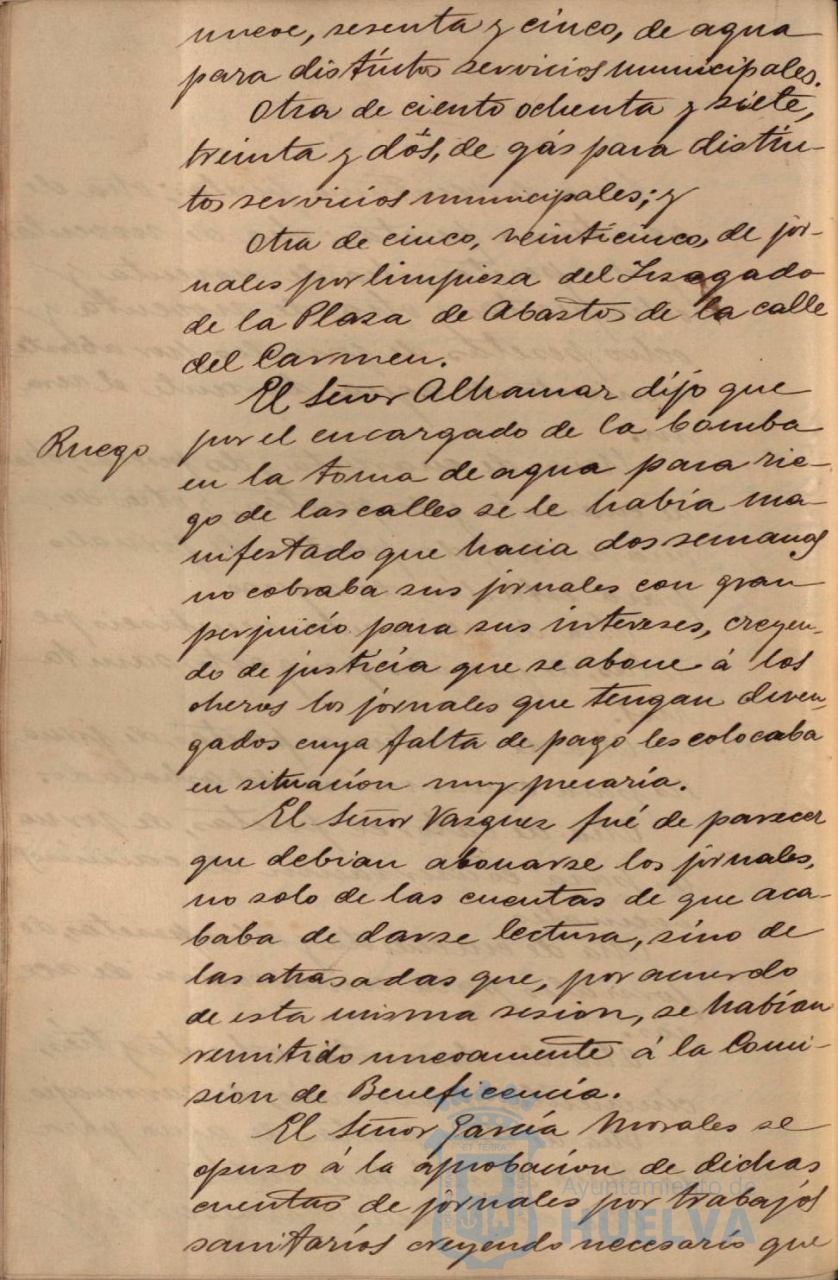 nueve, sesenta y cinco, de agua
para distintos servicios municipales.
Otra de ciento ochenta y siete,
treinta y dós, de gás para distin-
tos servicios municipales; y
Otra de cinco, veinticinco, de jor-
nales por limpiesa del Juzgado
de la Plasa de Abastos de la calle
del Carmen.
El Señor Alhamar dijo que
Ruego
por el encargado de la bomba
en la toma de agua para rie-
go de las calles se le había ma-
nifestado que hacia dos semanas
no cobraba sus jornales con gran
perjuicio para sus intereses, creyen-
do de justicia que se abone á los
obreros los jornales que tengan deven-
gados cuya falta de pago les colocaba
en situación muy precaria.
El Señor Vazquez fué de parecer
que debian abonarse los jornales,
no solo de las cuentas de que aca-
baba de darse lectura, sino de
las atrasadas que, por acuerdo
de esta misma sesion, se habían
remitido nuevamente á la Comi-
sion de Beneficencia.
El Señor García Morales se
opuso á la aprobación de dichas
cuentas de jornales por trabajos
sanitarios creyendo necesario que
Ayuntamiento de
HUELVA